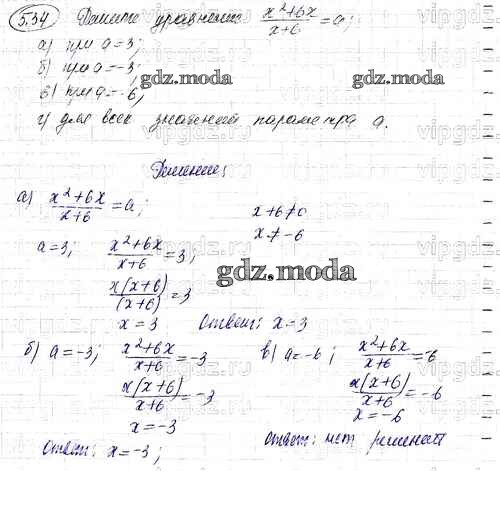 5.34 Решите уравнение x²+6x/x+6 = a;
а) при a=3;
б) при a=-3;
в) при a=-6;
г) для всех значений параметра a.
gdz.moda
Решение;
а) x²+6x/x+6 = a; x+6≠0
x≠-6
a=3; x²+6x/x+6 = 3;
x(x+6)/(x+6) = 3
gdz.moda
x=3 Ответ: x=3
б) a=-3; x²+6x/x+6 = -3
x(x+6)/x+6 = -3
x=-3
Ответ: x=-3;
в) a=-6; x²+6x/x+6 = -6
x(x+6)/x+6 = -6
x=-6
Ответ: нет решений